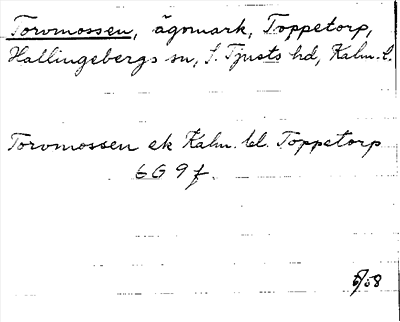 Torvmossen, ägomark, Toppetorp,
Hallingebergs sn, S. Tjusts hd, Kalm. l.
Torvmossen ek Kalm. bl. Toppetorp
6G 9f.
5/58